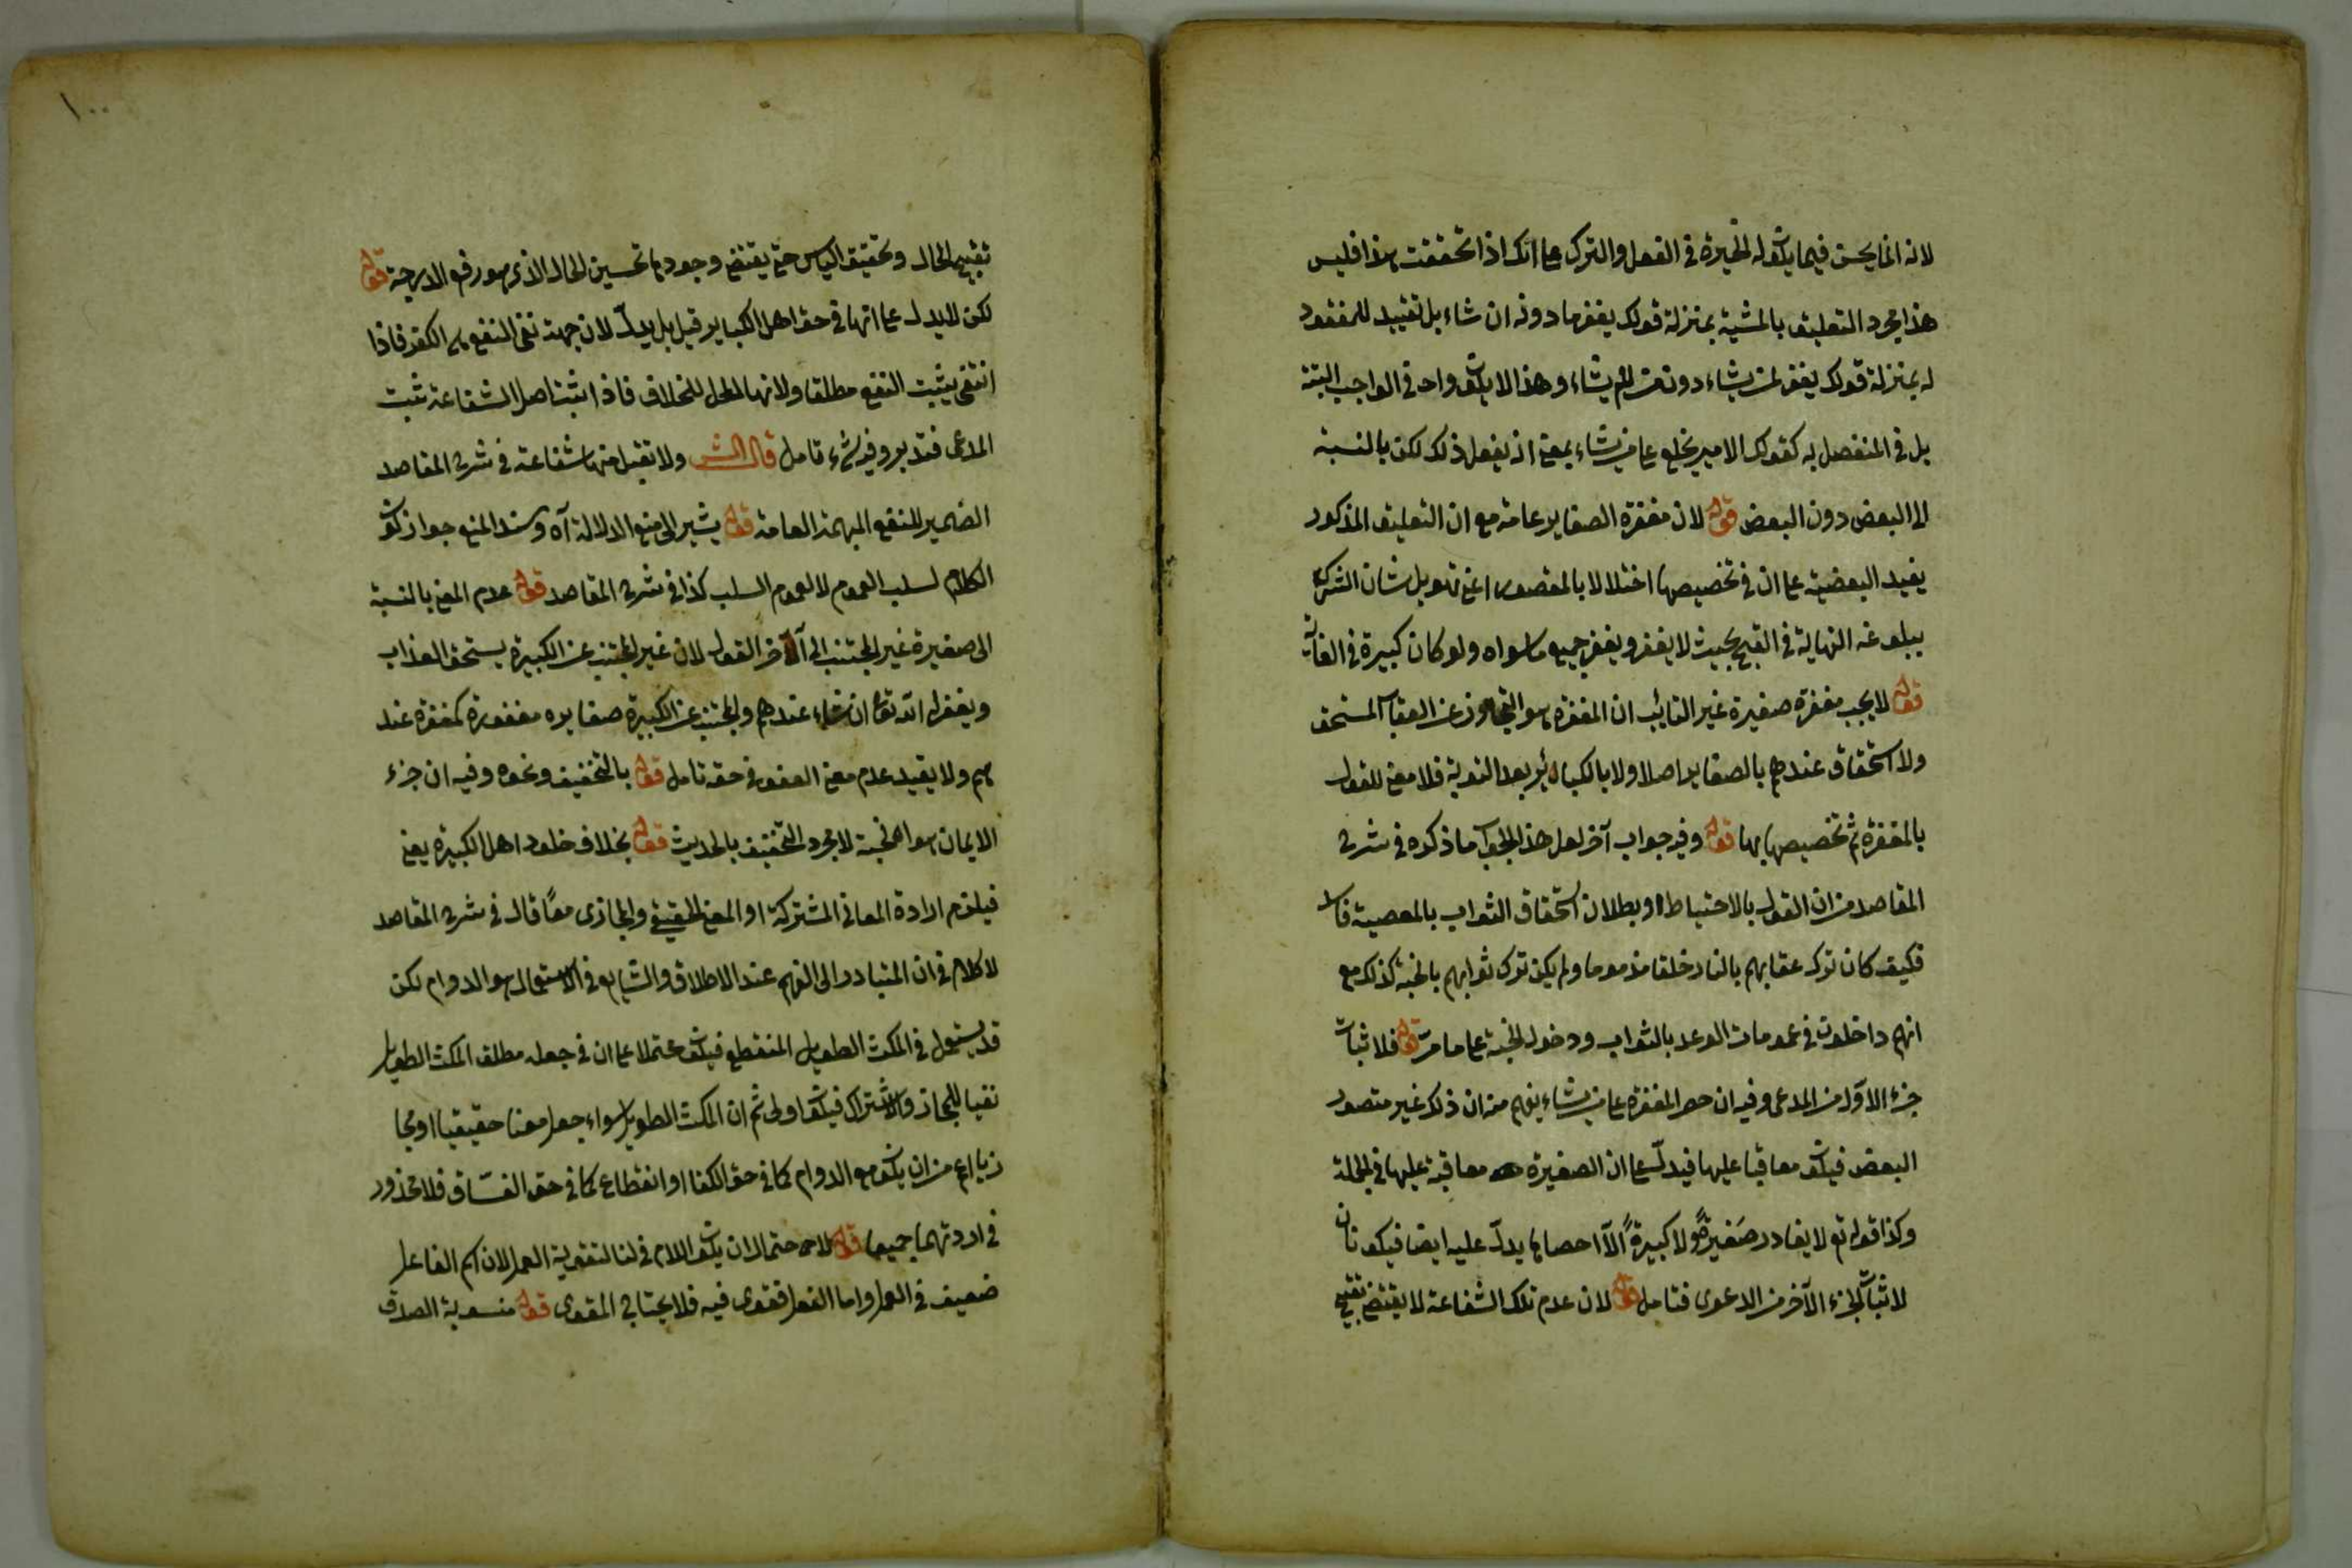 لانه انما يحسن فيما يكون له الخيرة في الفعل والترك على انك اذا تحققت هذا فليس
هذا مجرد التعليق بالمشية بمنزلة قولك يغفر ما دونه ان شاء بل تقييد للمغفور
له بمنزلة قولك يغفر لمن يشاء دون من لم يشاء وهذا لا يكون واحد في الواجب البتة
بل في المتفصل به كقولك الامير يخلع على من يشاء بمعنى انه يفعل ذلك لكن بالنسبة
الى البعض دون البعض قوله لان مغفرة الصغاير عامة مع ان التعليق المذكور
يفيد البعضية على ان في تخصيصها اختلالا بالمقصود اعني تهويل شان الشرك
ببلوغه النهاية في القبح بحيث لا يغفر ويغفر جميع ما سواه ولو كان كبيرة في الغاية
قوله لا يجب مغفرة صغيرة غير التائب ان المغفرة هو التجاوز عن العقاب المستحق
ولا استحقاق عندهم بالصغاير اصلا ولا بالكبائر بعد التوبة فلا معنى للقول
بالمغفرة ثم تخصيصها بها قوله وفيه جواب آخر لعل هذا الجواب ما ذكره في شرح
المقاصد من ان القول بالاحتباط وبطلان استحقاق الثواب بالمعصية فاسد
فكيف كان ترك عقابهم بالنار خلفا مذموما ولم يكن ترك ثوابهم بالجنة كذلك مع
انهم داخلون في عمومات الوعد بالثواب ودخول الجنة على ما مر قوله فلا ثبات
جزء الاول من المدعى وفيه ان حصر المغفرة على من يشاء يفهم منه ان ذلك غير متصور
البعض فيكون معاقبا عليها فيدل على ان الصغيرة معاقبة عليها في الجملة
وكذا قوله تع لا يغادر صَغيرةً ولا كبيرةً الّا احصاها يدلّ عليه ايضا فيكونان
لاثبات الجزء الآخر من الدعوى فتامل قوله لان عدم تلك الشفاعة لا يقتضي تقبيح
١٠٠
تقبيح الحال وتحقيق الياس حتى يقتضي وجودها تحسين الحال الذي هو رفع الدرجة قوله
لكن لا يدل على انها في حق اهل الكباير قيل بل يدلّ لان جهة نفي النفع هي الكفر فاذا
انتفى يثبت النفع مطلقا ولانها المحل للخلاف فاذا ثبت اصل الشفاعة ثبت
المدعى فتدبر وفيه شيء تامل قال الش ولا تقبل منها شفاعة في شرح المقاصد
الضمير للنفع المبهمة العامة قوله يشير الى منع الدلالة آه وسند المنع جواز كون
الكلام لسلب العموم لا لعموم السلب كذا في شرح المقاصد قوله عدم المعنى بالنسبة
الى صغيرة غير المجتنب الى آخر القول لان غير المجتنب عن الكبيرة يستحق العذاب
ويغفر له الله تعالى ان شاء عندهم والمجتنب عن الكبيرة صغايره مغفورة كمغفرة عند
هم ولا يقيد عدم معنى العفو في حقه تامل قوله بالتخفيف ونحوه وفيه ان جزء
الايمان هو الجنة لا مجرد التخفيف بالحديث قوله بخلاف خلود اهل الكبيرة يعني
فيلزم ارادة المعاني المشتركة او المعنى الحقيقي والمجازي معًا قال في شرح المقاصد
لا كلام في ان المتبادر الى الفهم عند الاطلاق والشايع في الاستعمال هو الدوام لكن
قد يستعمل في المكث الطويل المنقطع فيكون محتملا على ان في جعله مطلق المكث الطويل
نفيا للمجاز والاشتراك فيكون اولى ثم ان المكث الطويل سواء جعل معنا حقيقيا او مجا
زيا اعم من ان يكون مع الدوام كما في حق الكفار او انقطاع كما في حق الفسّاق فلا محذور
في اردتهما جميعا قوله لاحتمال ان يكون اللام في لنا لتقوية العمل لان اسم الفاعل
ضعيف في العمل واما الفعل فقوى فيه فلا يحتاج المقوى قوله منسوبة الصدق